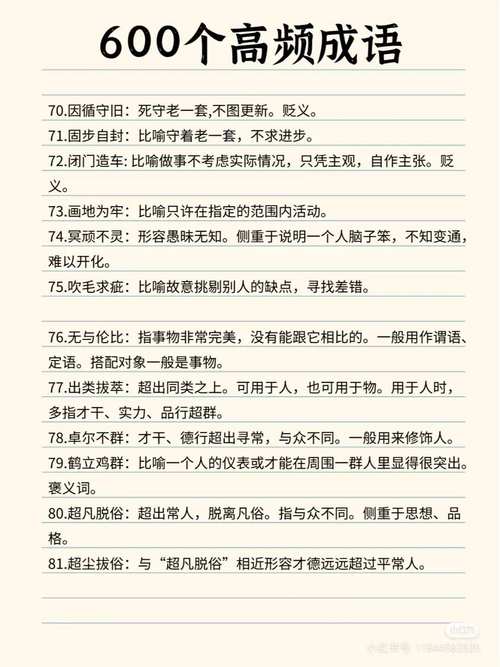 600个高频成语
70.因循守旧：死守老一套,不图更新。贬义。
71.固步自封：比喻守着老一套，不求进步。
72.闭门造车: 比喻做事不考虑实际情况，只凭主观，自作主张。贬
义。
73.画地为牢：比喻只许在指定的范围内活动。
74.冥顽不灵：形容愚昧无知。侧重于说明一个人脑子笨，不知变通，
难以开化。
75.吹毛求疵：比喻故意挑剔别人的缺点，寻找差错。
76.无与伦比：指事物非常完美，没有能跟它相比的。一般用作谓语、
定语。搭配对象一般是事物。
77.出类拔萃：超出同类之上。可用于人，也可用于物。用于人时，
多指才干、实力、品行超群。
78.卓尔不群：才干、德行超出寻常，与众不同。一般用来修饰人。
79.鹤立鸡群：比喻一个人的仪表或才能在周围一群人里显得很突出。
褒义词。
80.超凡脱俗：超出常人，脱离凡俗。指与众不同。侧重于思想、品
格。
81.超尘拔俗：与“超凡脱俗”相近形容才德远远超过平常人。
小红书
小红书号